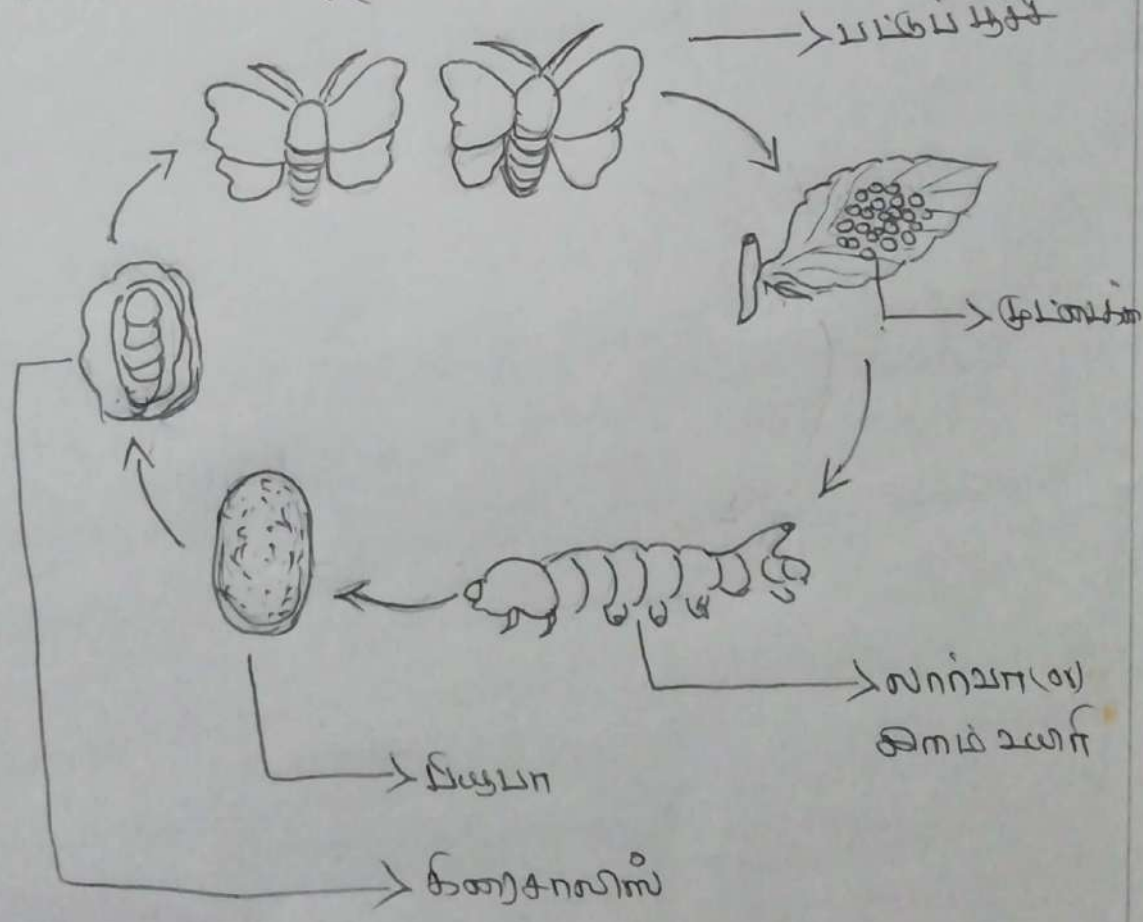 பட்டுப் பூச்சி
முட்டைகள்
லார்வா (or)
இளம் உயிரி
பியூபா
கிரைசாலிஸ்